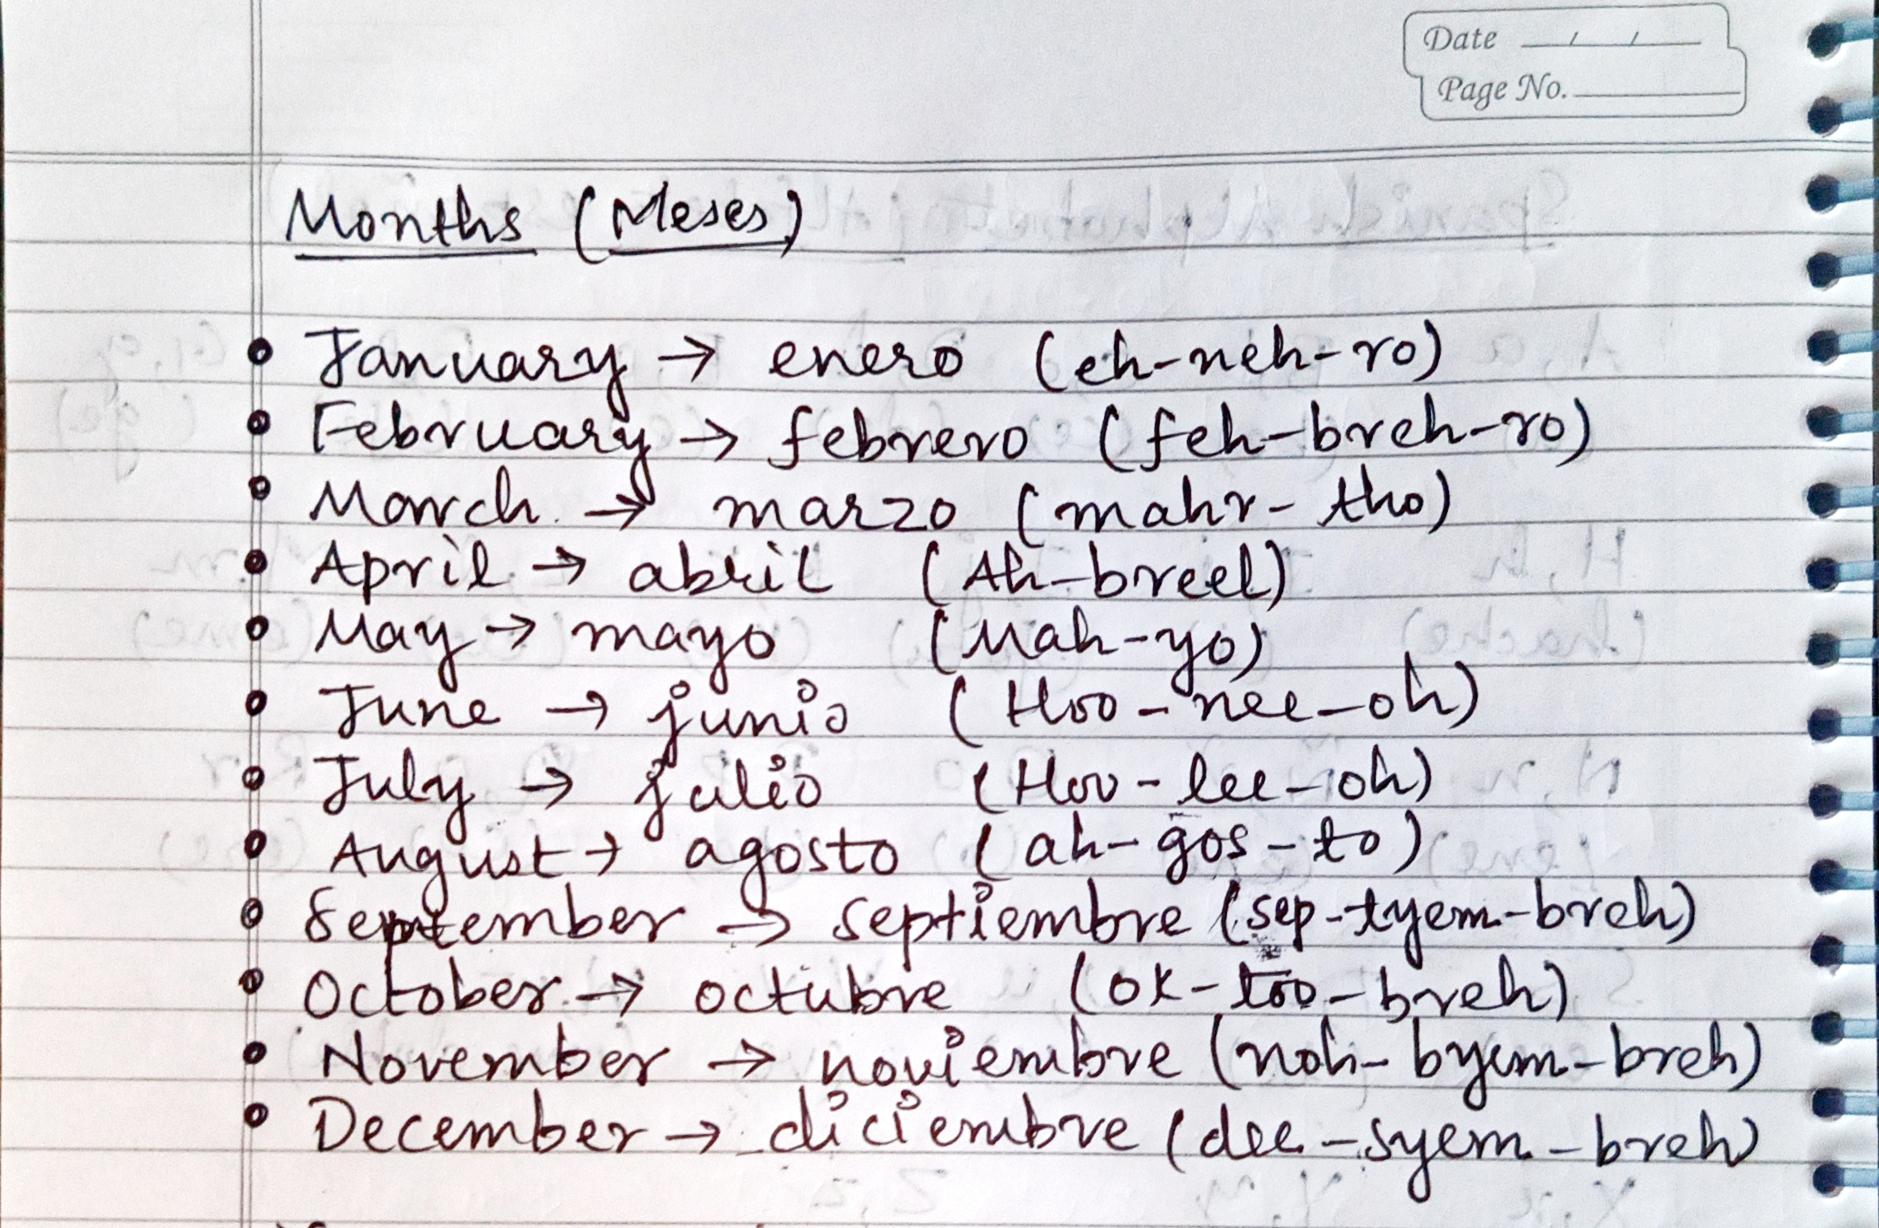 Date / /
Page No.
Months (Meses)
• January → enero (eh-neh-ro)
• February → febrero (feh-breh-ro)
• March → marzo (mahr-tho)
• April → abril (Ah-breel)
• May → mayo (Mah-yo)
• June → junio (Hoo-nee-oh)
• July → julio (Hoo-lee-oh)
• August → agosto (ah-gos-to)
• September → septiembre (sep-tyem-breh)
• October → octubre (ok-too-breh)
• November → noviembre (noh-byem-breh)
• December → diciembre (dee-syem-breh)